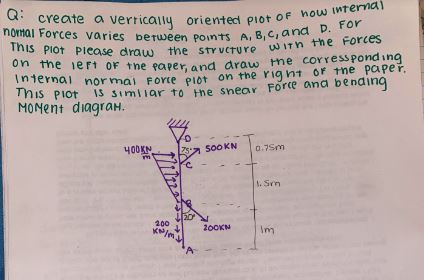 Q: create a vertically oriented plot of how internal
normal Forces varies between points A, B, C, and D. For
This plot please draw the structure with the Forces
on the left of the paper, and draw the corresponding
Internal normal Force plot on the right of the paper.
This plot is similar to the shear Force and bending
Moment diagram.
D
400KN/m
75°
500KN
0.75m
C
1.5m
B
200
KN/m
20°
200KN
1m
A